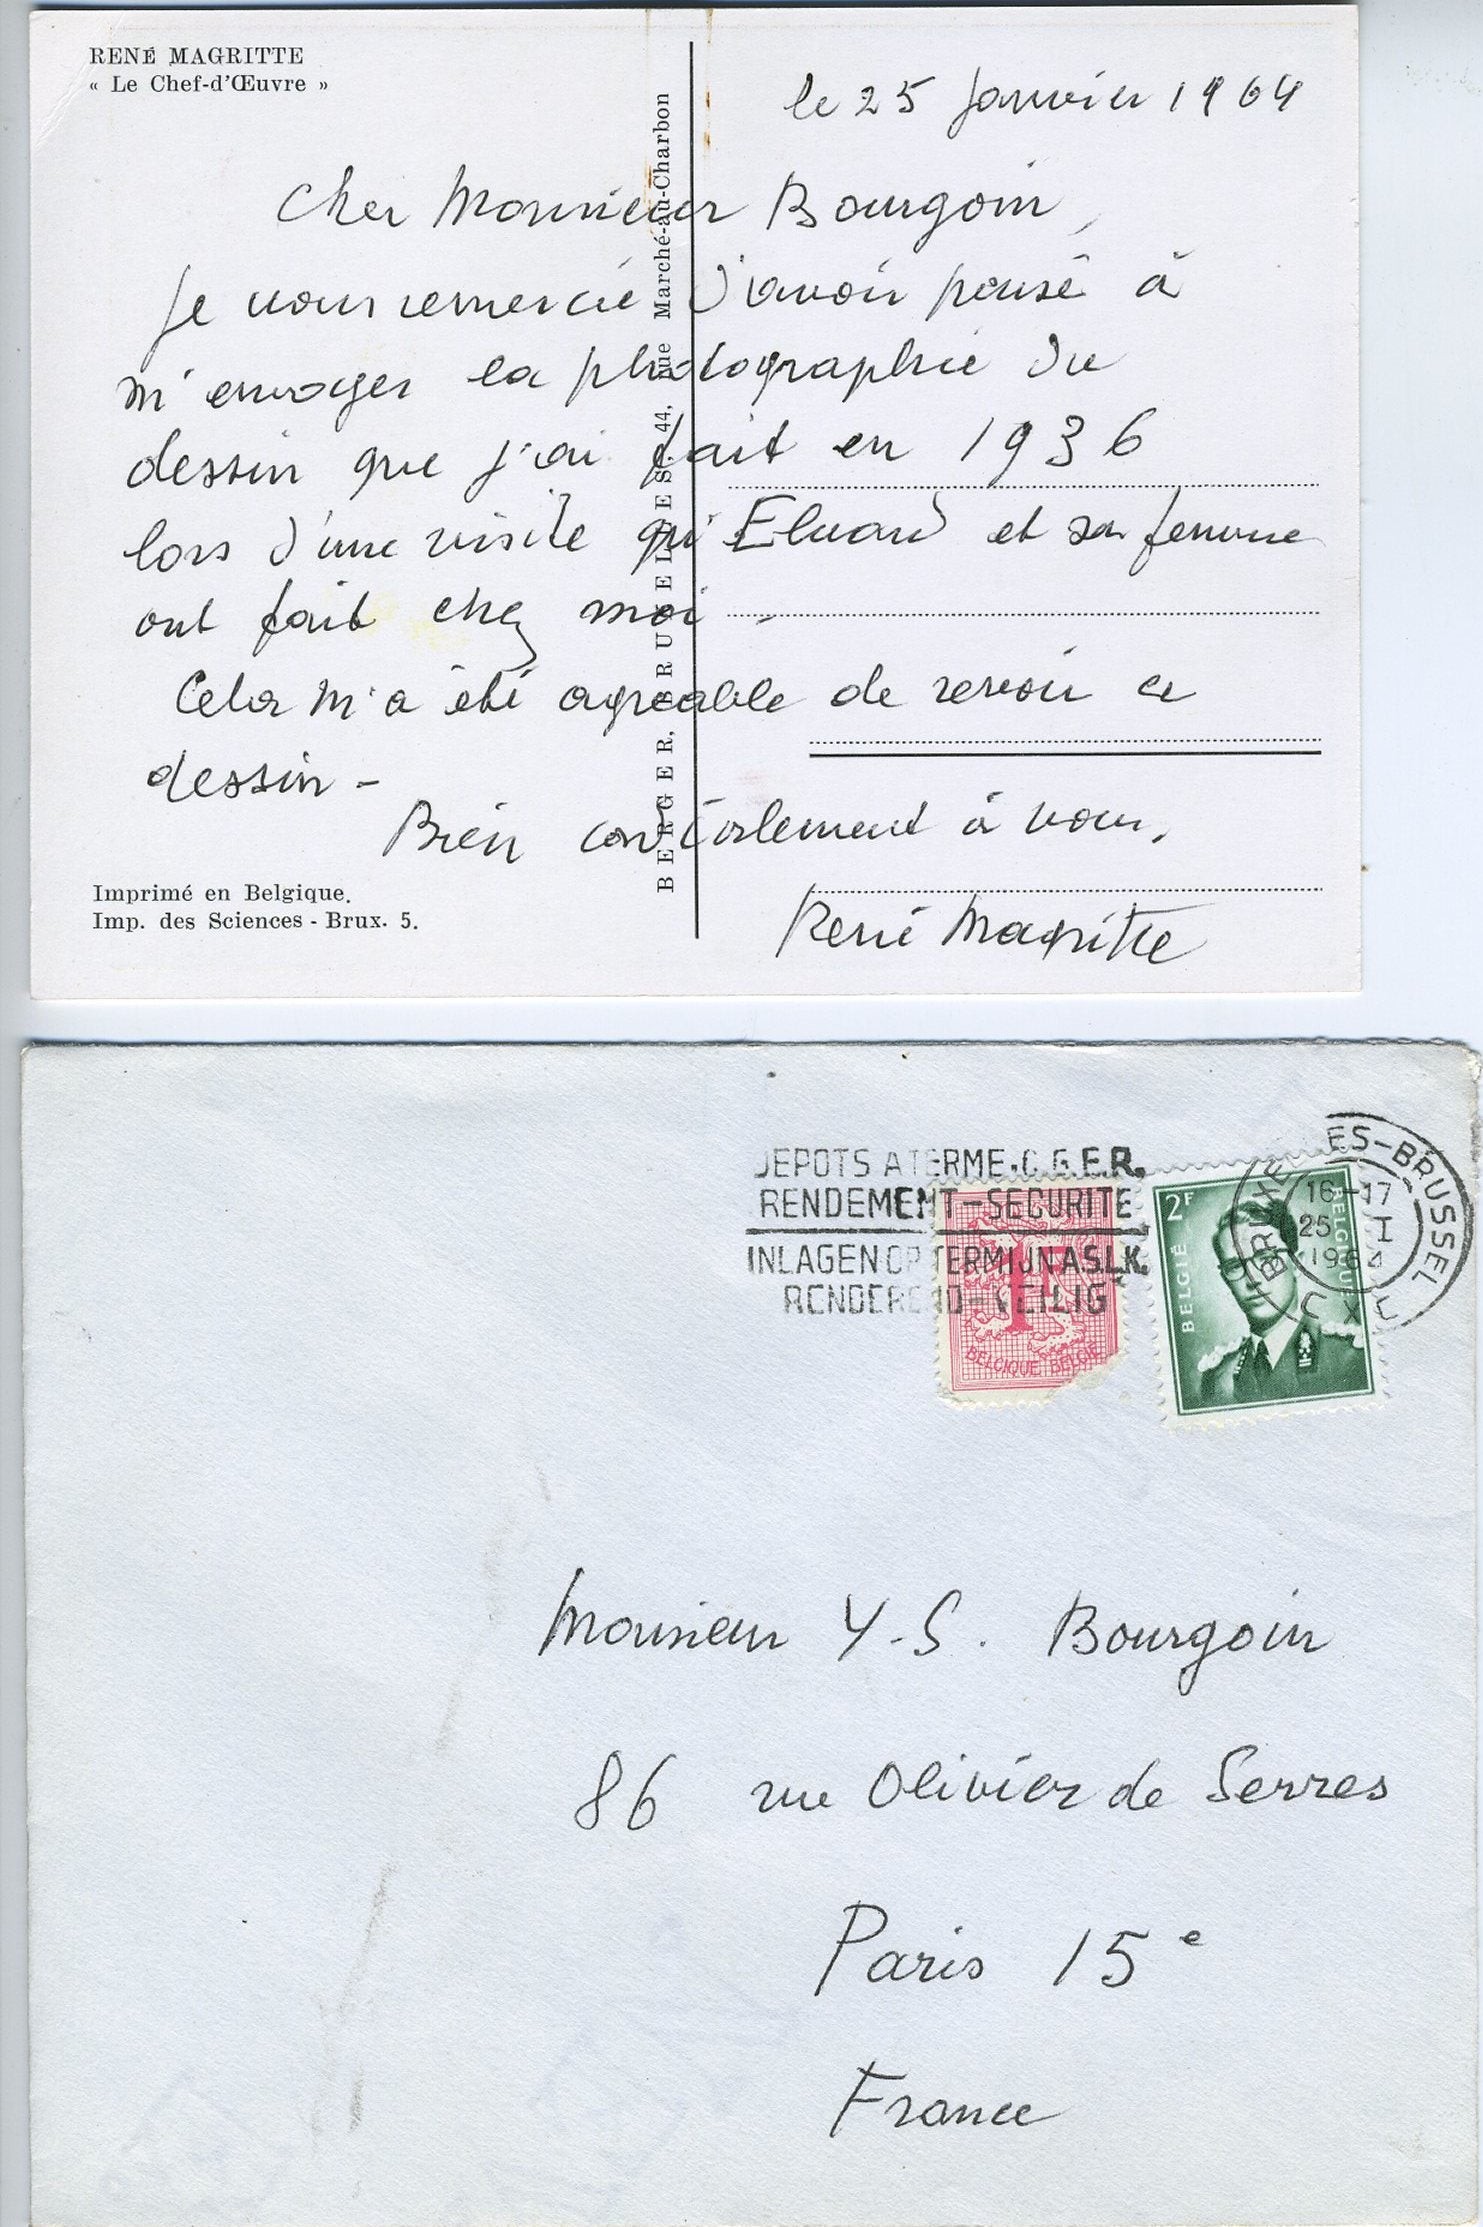 RENÉ MAGRITTE
« Le Chef-d'Œuvre »
le 25 janvier 1964
Cher Monsieur Bourgoin,
Je vous remercie d'avoir pensé à
m'envoyer la photographie du
dessin que j'ai fait en 1936
lors d'une visite qu'Eluard et sa femme
ont fait chez moi.
Cela m'a été agréable de revoir ce
dessin -
Bien cordialement à vous,
René Magritte
Imprimé en Belgique.
Imp. des Sciences - Brux. 5.
BERGER, BRUXELLES. 44, Rue Marché-au-Charbon
DEPOTS A TERME. C.G.E.R.
RENDEMENT-SECURITE
INLAGEN OP TERMIJN A.S.L.K.
RENDEREND-VEILIG
1F
BELGIQUE BELGIE
2F
BELGIË
BELGIQUE
BRUXELLES-BRUSSEL
16-17
25 I
1964
Monsieur Y-S. Bourgoin
86 rue Olivier de Serres
Paris 15e
France